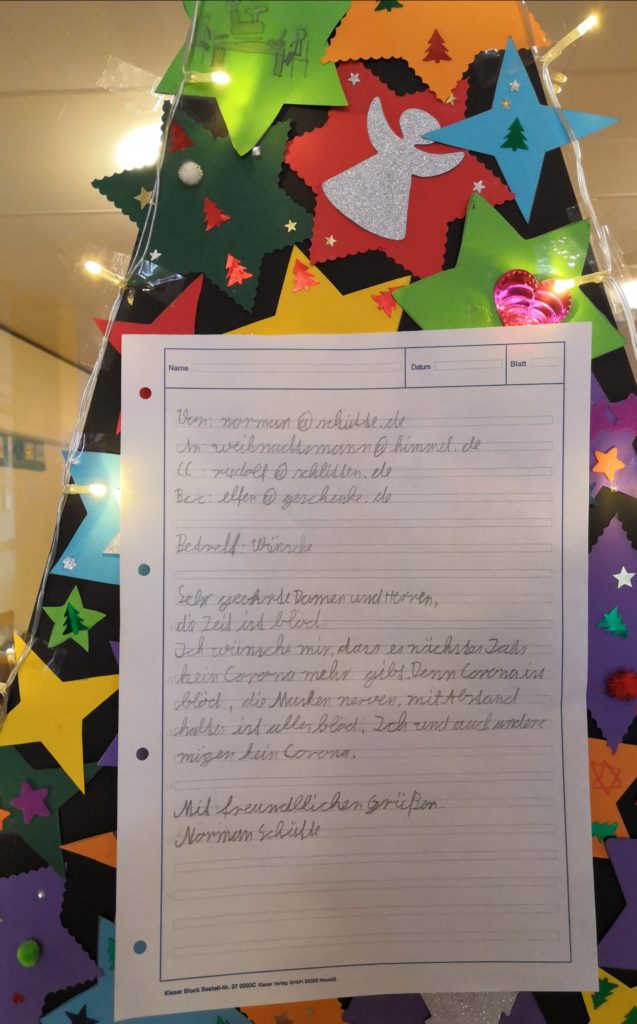 Name
Datum
Blatt
Von: norman@schütte.de
An weihnachtsmann@himmel.de
CC : rudolf@schlitten.de
Bcc: elfen@geschenke.de
Betreff: Wünsche
Sehr geehrte Damen und Herren,
die Zeit ist blöd.
Ich wünsche mir, dass es nächstes Jahr
kein Corona mehr gibt. Denn Corona ist
blöd, die Masken nerven, mit Abstand
halten ist alles blöd, Ich und auch andere
mögen kein Corona.
Mit freundlichen Grüßen
Norman Schütte
Kieser Block Bestell-Nr. 07 0003C Kieser Verlag GmbH 86356 Neusäß